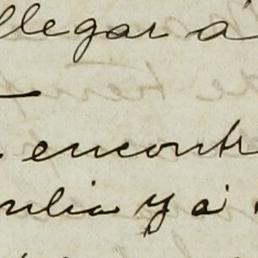 llegar á
encontr
milia y á